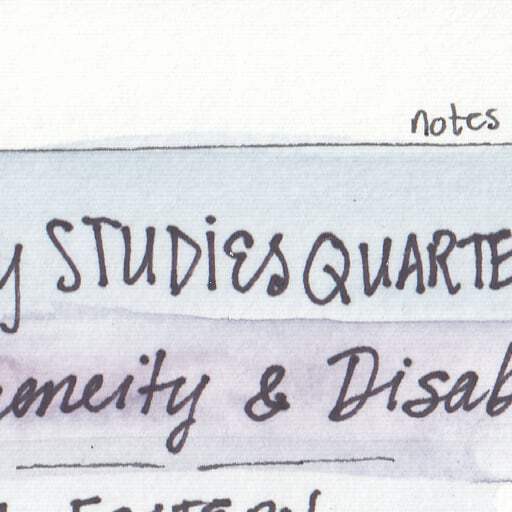 notes
y STUDiES QUARTE
oneity & Disab